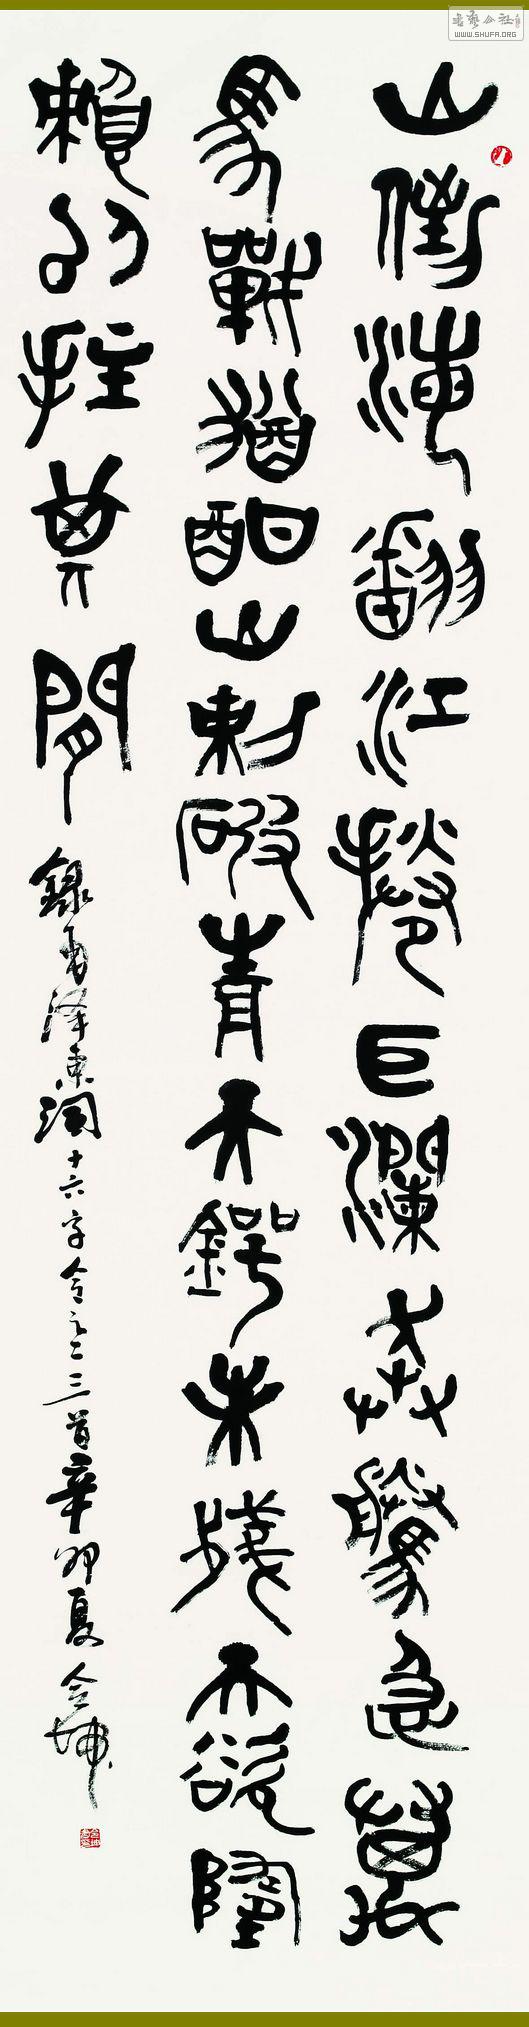 山倒海翻江捲巨瀾奔騰急萬
馬戰猶酣山刺破青天鍔未殘天欲墮
賴以拄其間
錄毛澤東詞十六字令之二三首辛卯夏
书艺公社
WWW.SHUFA.ORG